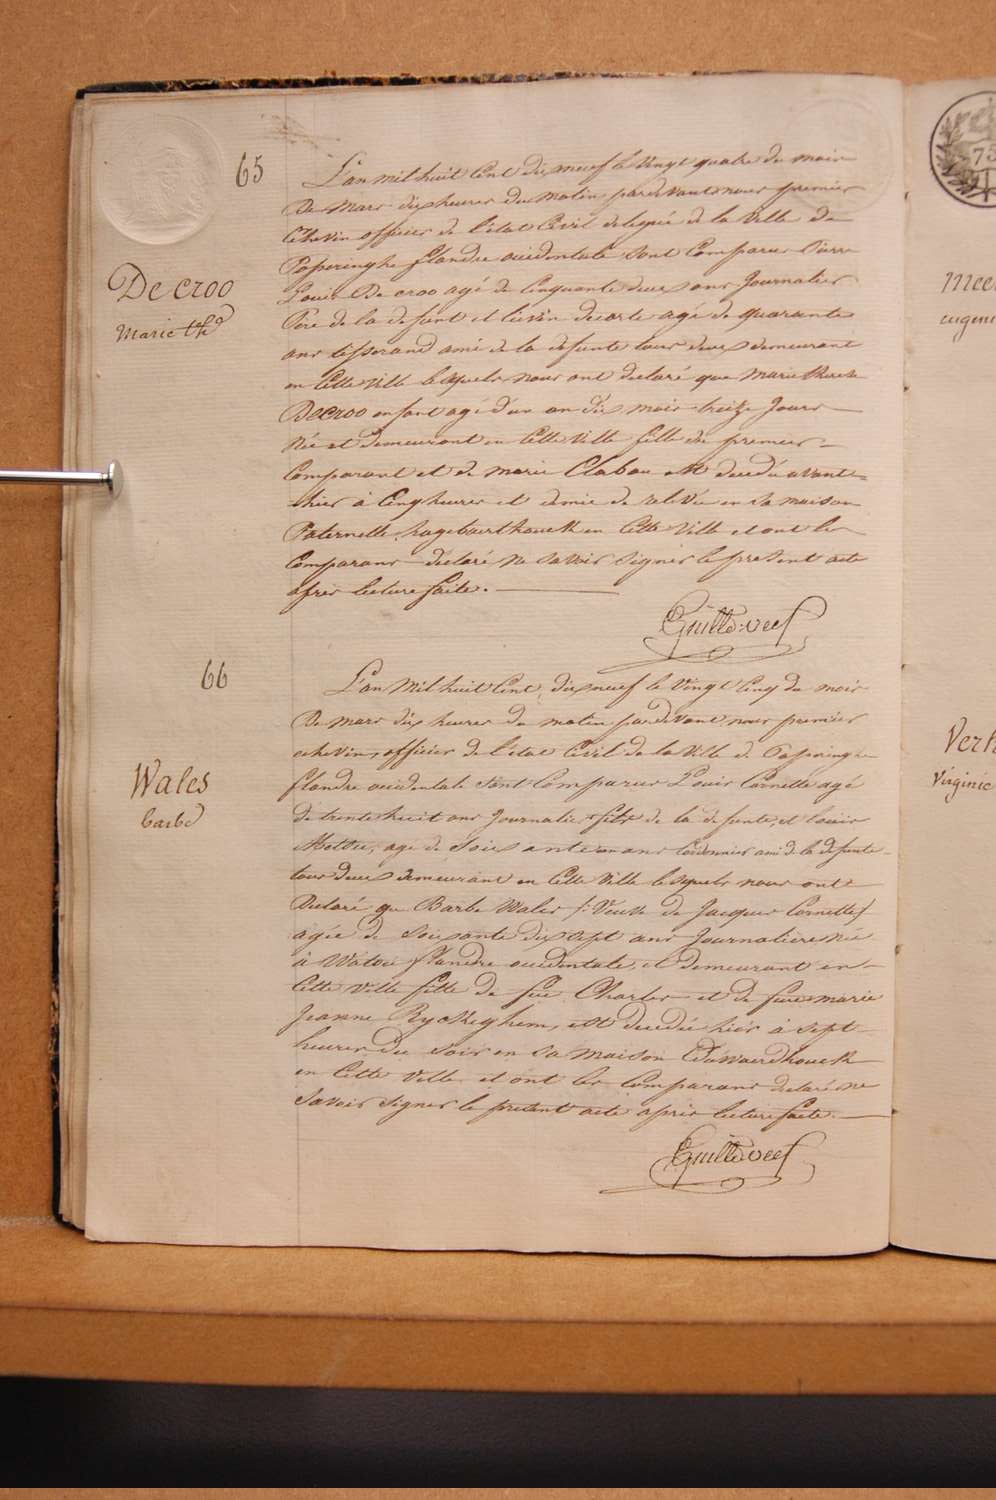 65
L'an mil huit Cent dix neuf le Vingt quatre du mois
De Mars dix heures du matin pardevant nous premier
Echevin officier de l'état Civil delegué de la Ville De
Poperinghe flandre occidentale sont Comparus Pierre
Louis De croo agé de Cinquante deux ans Journalier
De croo
Pere de la defunt et lievin decorte agé de quarante
Marie thse
ans tisserand ami de la defunte tous deux demeurant
en Cette Ville lesquels nous ont declaré que Marie therese
Decroo enfant agé d'un an dix mois treize Jours
Née et demeurant en Cette Ville fille du premier
Comparant et de marie Clabau est decedée avant=
hier à Cinq heures et demie de relevée en sa maison
Paternelle, hagebaerthouck en Cette Ville et ont les
Comparans declaré ne savoir signer le present acte
après lecture faite.
66
L'an Mil huit Cent dix neuf le Vingt Cinq du mois
De mars dix heures du matin pardevant nous premier
echevin, officier de l'état Civil de la Ville de Poperinghe
Wales
flandre occidentale sont Comparus Louis Cornette agé
Barbe
de trente huit ans Journalier fils de la defunte, et louis
agé de soixante un ans Cordonnier ami de la defunte
tous deux demeurant en Cette Ville lesquels nous ont
Declaré que Barbe Wales /: Veuve de Jacques Cornette/
agée de soixante dix sept ans Journaliere née
à Watou flandre occidentale, et demeurant en
Cette Ville fille de feu Charles et de feue marie
Jeanne Ryckeghem, est decedée hier à sept
heures du soir en sa maison
en Cette Ville et ont les Comparans declaré ne
Savoir signer le present acte après lecture faite.
75
Virginie